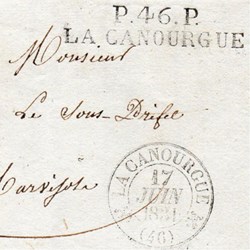 P.46.P.
LA CANOURGUE
Monsieur
Le Sous-Préfet
Marvejols
LA CANOURGUE
17
JUIN
(46)